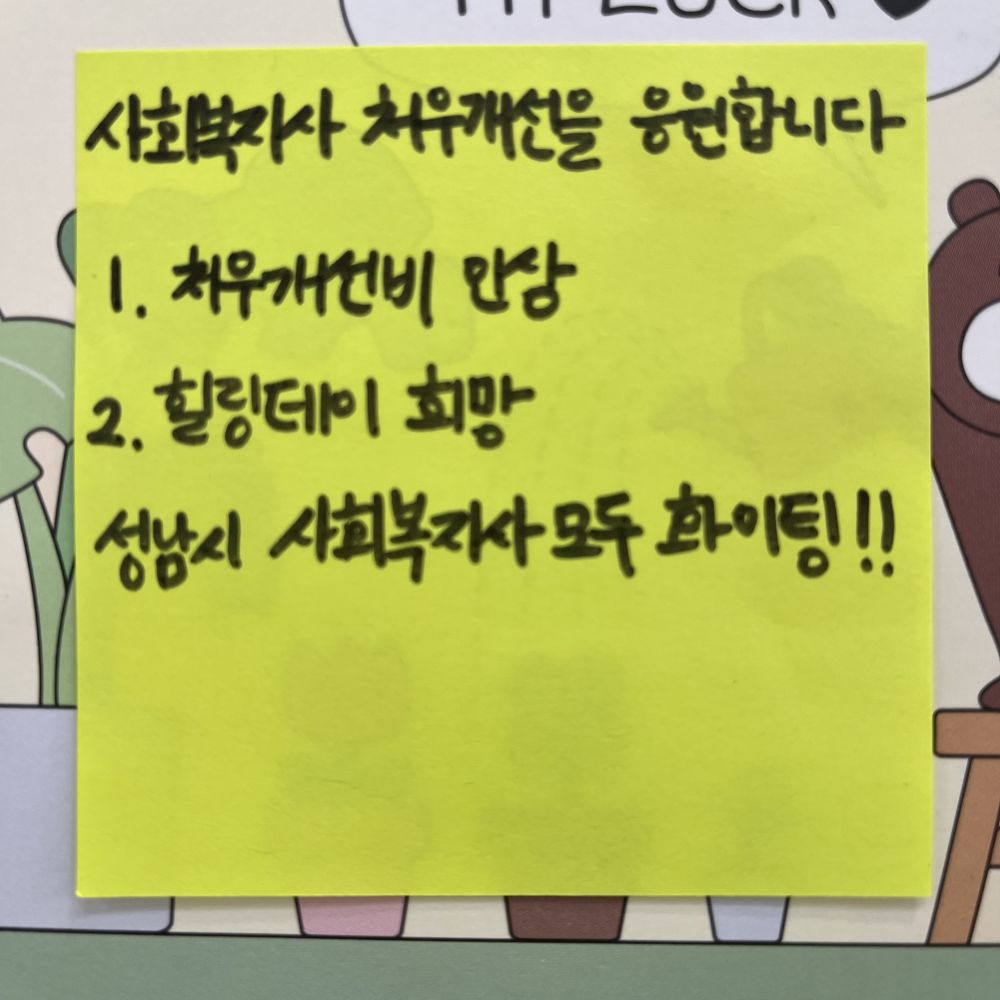 사회복지사 처우개선을 응원합니다
1. 처우개선비 인상
2. 힐링데이 희망
성남시 사회복지사 모두 화이팅!!